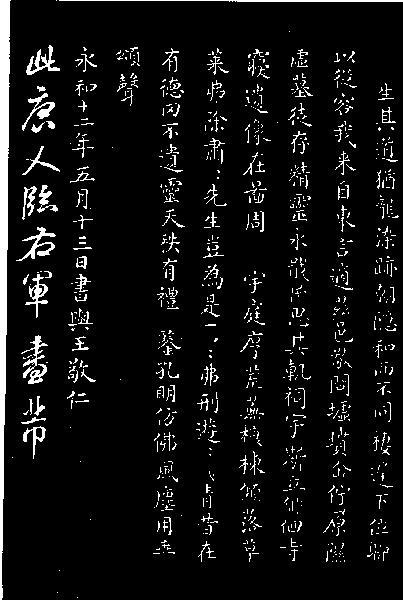 生其道猶龍染跡朝隱和而不同棲遲下位聊
以從容我来自東言適茲邑敬問墟墳企佇原隰
虛墓徒存精靈永戢民思其軌祠宇斯立俳佪寺
寢遺像在啚周 宇庭序荒蕪榱棟傾落草
萊弗除肅〻先生豈為是〻弗刑遊〻昔在
有德罔不遺靈天秩有禮 孔明仿佛風塵用垂
頌聲
永和十二年五月十三日書與王敬仁
此唐人臨右軍畫